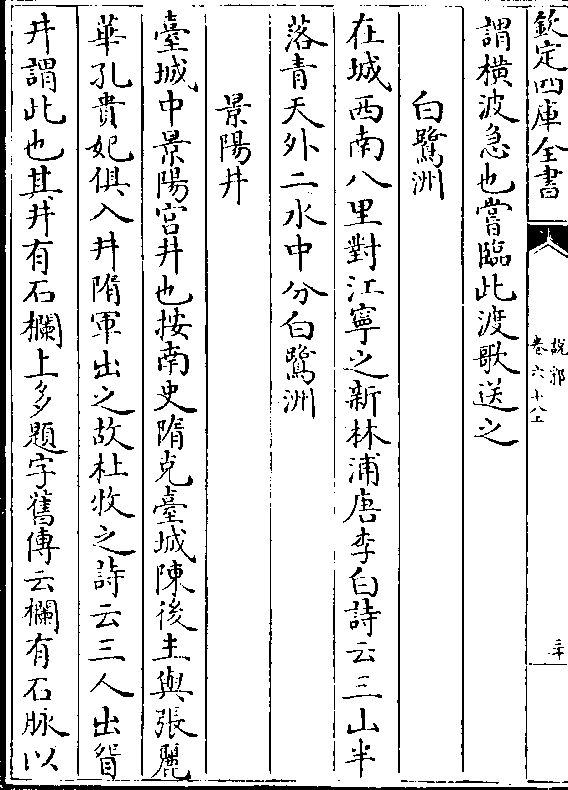 欽定四庫全書
說郛
卷六十八上
三十
謂橫波急也嘗臨此渡歌送之
白鷺洲
在城西南八里對江寧之新林浦唐李白詩云三山半
落青天外二水中分白鷺洲
景陽井
臺城中景陽宮井也按南史隋克臺城陳後主與張麗
華孔貴妃俱入井隋軍出之故杜牧之詩云三人出眢
井謂此也其井有石欄上多題字舊傳云欄有石脉以